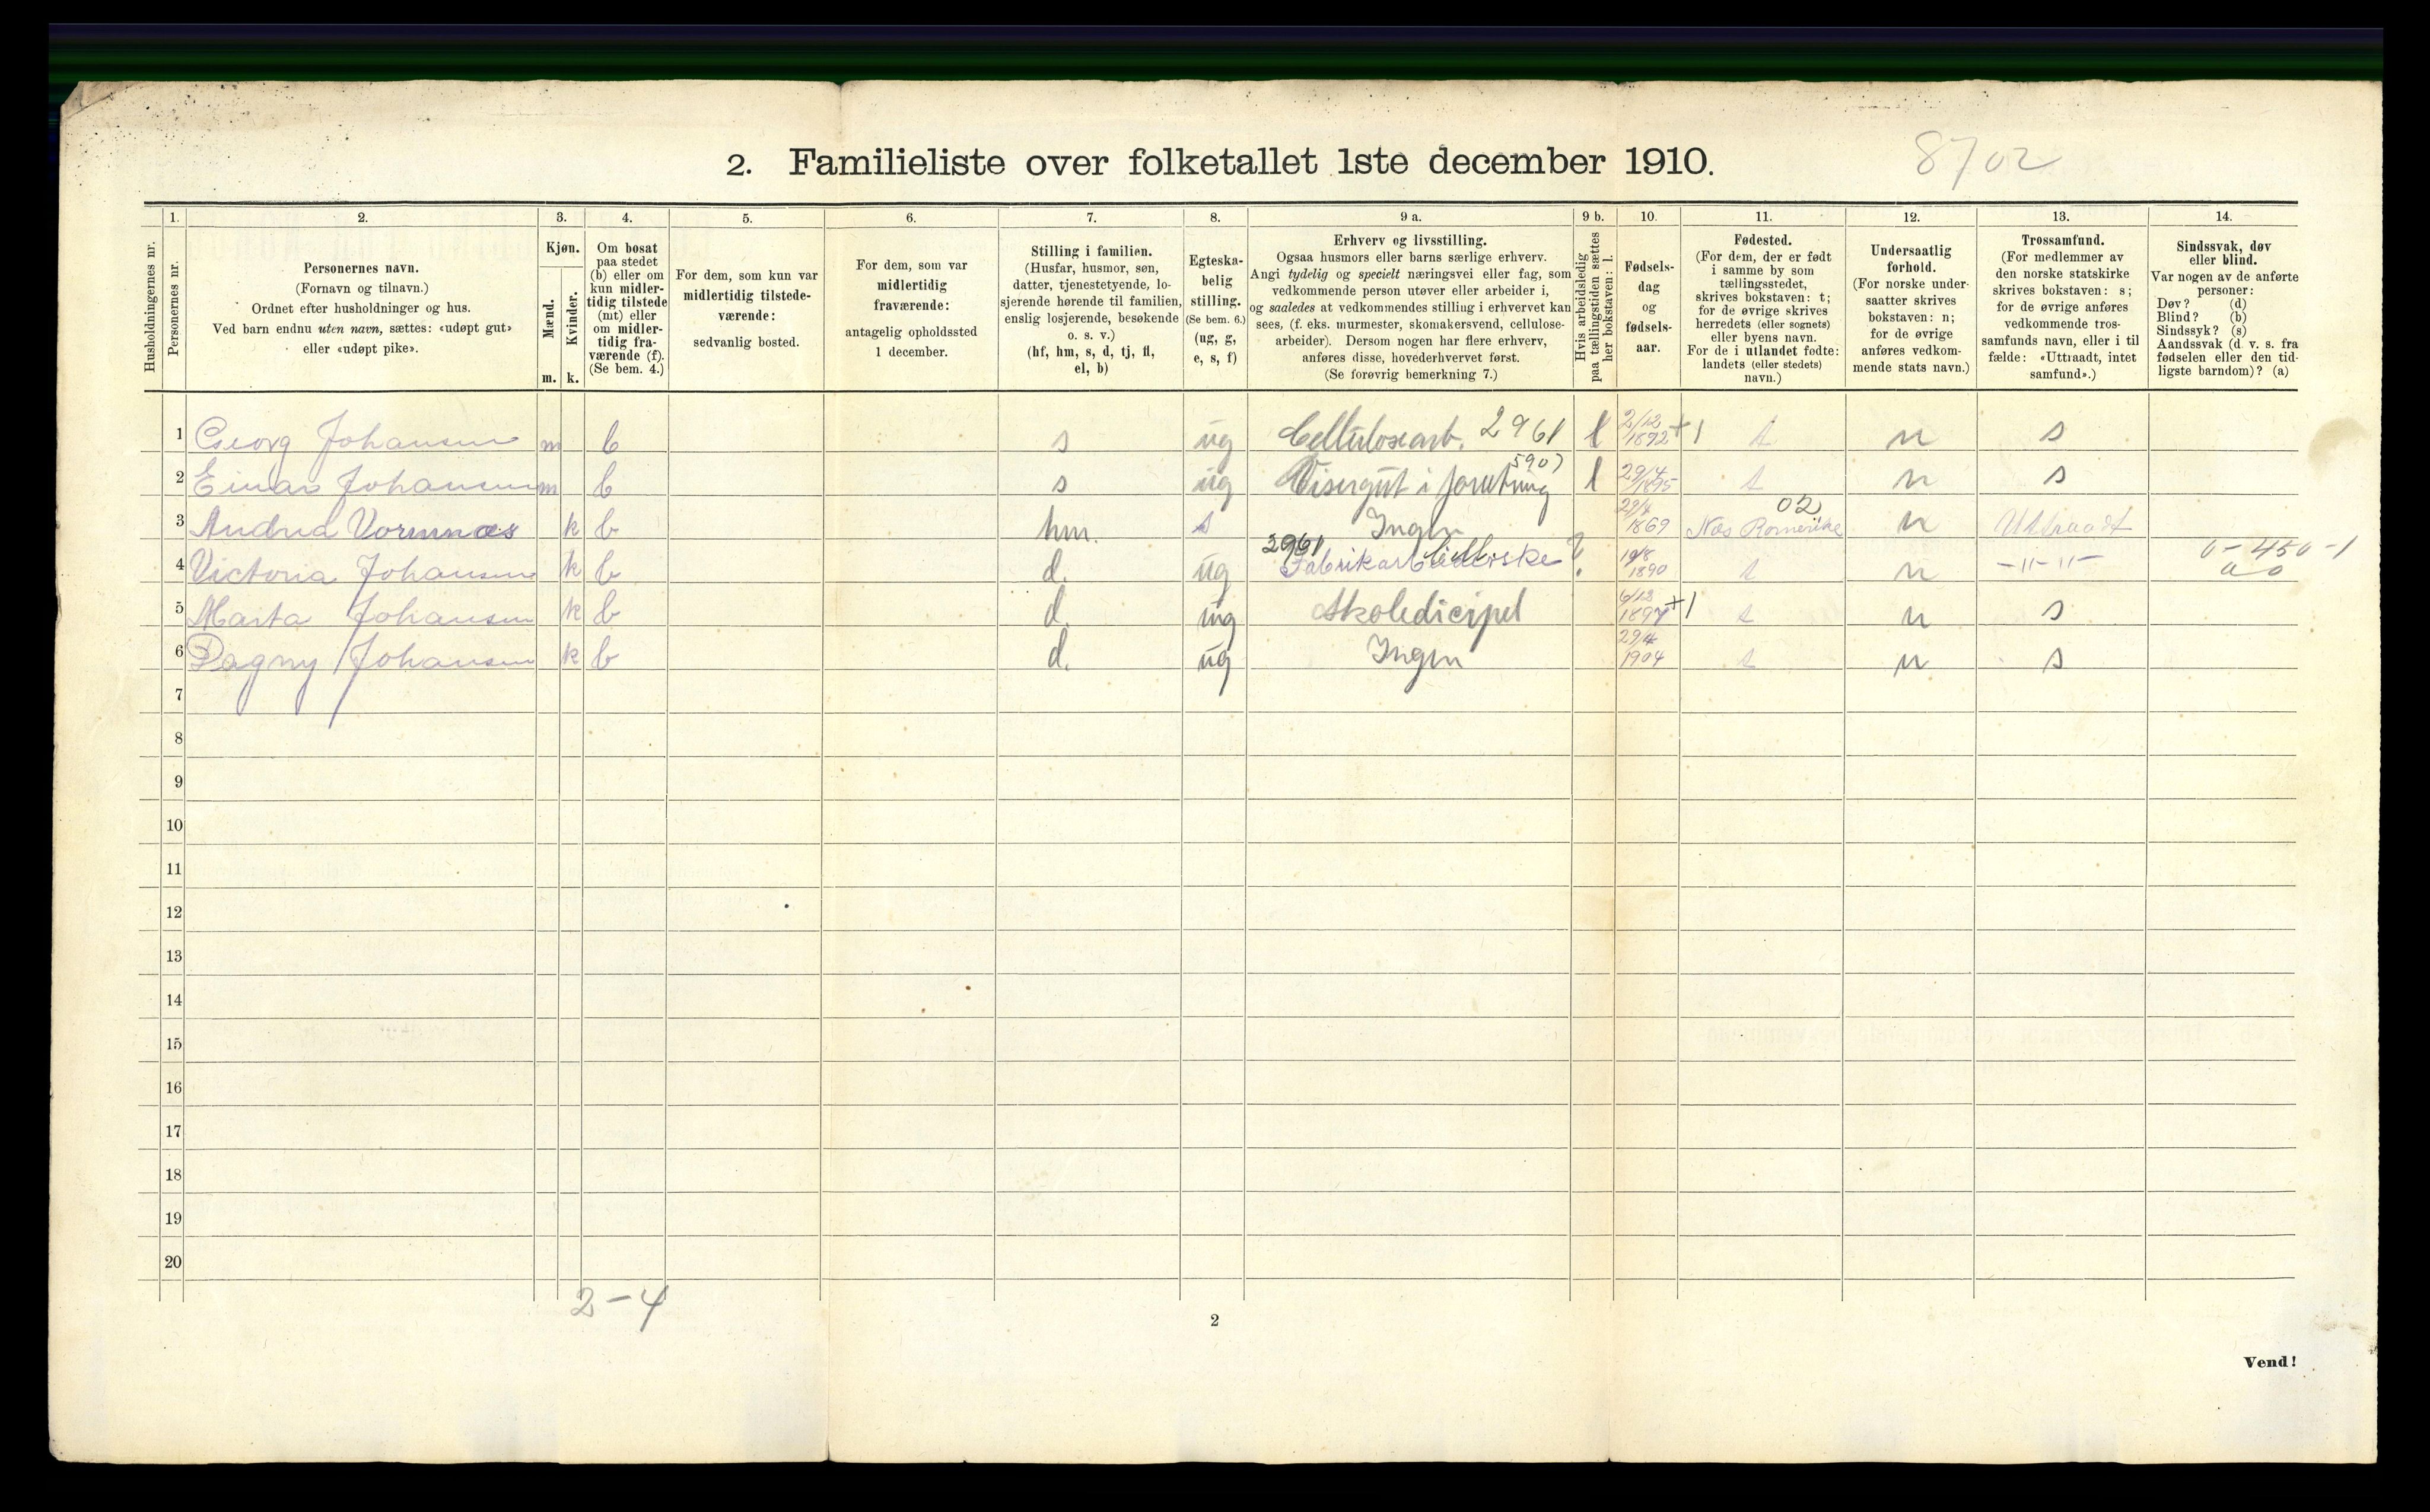 2. Familieliste over folketallet 1ste december 1910.
8702
1. 2. 3. 4. 5. 6. 7. 8. 9 a. 9 b. 10. 11. 12. 13. 14.
Husholdningernes nr.
Personernes nr.
Personernes navn.
(Fornavn og tilnavn.)
Ordnet efter husholdninger og hus.
Ved barn endnu uten navn, sættes: «udøpt gut»
eller «udøpt pike».
Kjøn.
Mænd.
Kvinder.
m. k.
Om bosat
paa stedet
(b) eller om
kun midler-
tidig tilstede
(mt) eller
om midler-
tidig fra-
værende (f).
(Se bem. 4.)
For dem, som kun var
midlertidig tilstede-
værende:
sedvanlig bosted.
For dem, som var
midlertidig
fraværende:
antagelig opholdssted
1 december.
Stilling i familien.
(Husfar, husmor, søn,
datter, tjenestetyende, lo-
sjerende hørende til familien,
enslig losjerende, besøkende
o. s. v.)
(hf, hm, s, d, tj, fl,
el, b)
Egteska-
belig
stilling.
(Se bem. 6.)
(ug, g,
e, s, f)
Erhverv og livsstilling.
Ogsaa husmors eller barns særlige erhverv.
Angi tydelig og specielt næringsvei eller fag, som
vedkommende person utøver eller arbeider i,
og saaledes at vedkommendes stilling i erhvervet kan
sees, (f. eks. murmester, skomakersvend, cellulose-
arbeider). Dersom nogen har flere erhverv,
anføres disse, hovederhvervet først.
(Se forøvrig bemerkning 7.)
Hvis arbeidsledig
paa tællingstiden sættes
her bokstaven: l.
Fødsels-
dag
og
fødsels-
aar.
Fødested.
(For dem, der er født
i samme by som
tællingsstedet,
skrives bokstaven: t;
for de øvrige skrives
herredets (eller sognets)
eller byens navn.
For de i utlandet fødte:
landets (eller stedets)
navn.)
Undersaatlig
forhold.
(For norske under-
saatter skrives
bokstaven: n;
for de øvrige
anføres vedkom-
mende stats navn.)
Trossamfund.
(For medlemmer av
den norske statskirke
skrives bokstaven: s;
for de øvrige anføres
vedkommende tros-
samfunds navn, eller i til
fælde: «Uttraadt, intet
samfund».)
Sindssvak, døv
eller blind.
Var nogen av de anførte
personer:
Døv? (d)
Blind? (b)
Sindssyk? (s)
Aandssvak (d. v. s. fra
fødselen eller den tid-
ligste barndom)? (a)
1 Georg Johansen m b s ug Cellulosearb. 2961 l 2/12 1892 +1 t n s
2 Einar Johansen m b s ug Visergut i forretning 5907 l 29/4 1895 t n s
3 Andrea Vormnæs k b hm. s Ingen 29/4 1869 Næs Romerike 02 n Uttraadt
4 Victoria Johansen k b d. ug 2961 Fabrikarbeiderske Cell. ? 19/8 1890 t n -"-"- 0-450-1
5 Marta Johansen k b d. ug Skoledicipel 6/12 1897 +1 t n s
6 Dagny Johansen k b d. ug Ingen 29/4 1904 t n s
7
8
9
10
11
12
13
14
15
16
17
18
19
20
2-4
2
Vend!